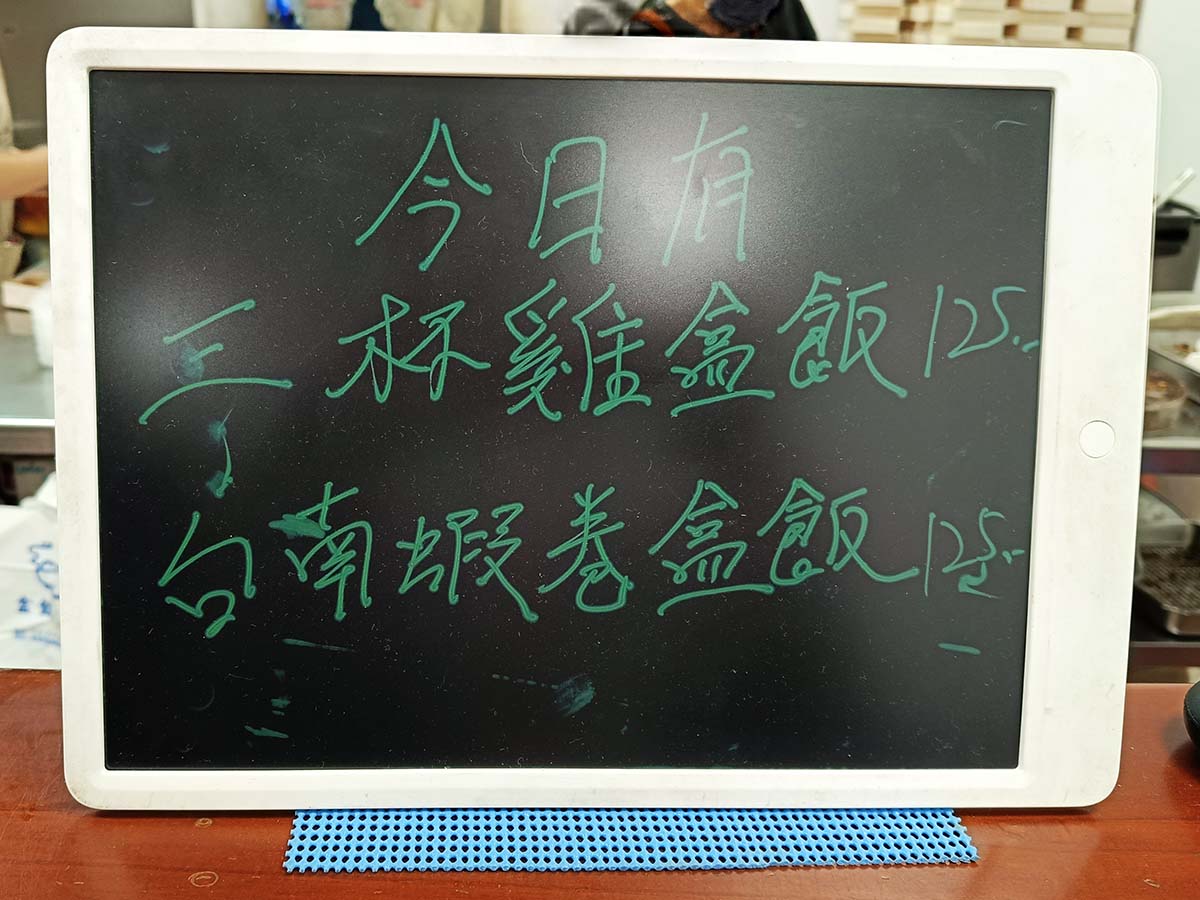 今日有
三杯雞盒飯125..
台南蝦卷盒飯125..